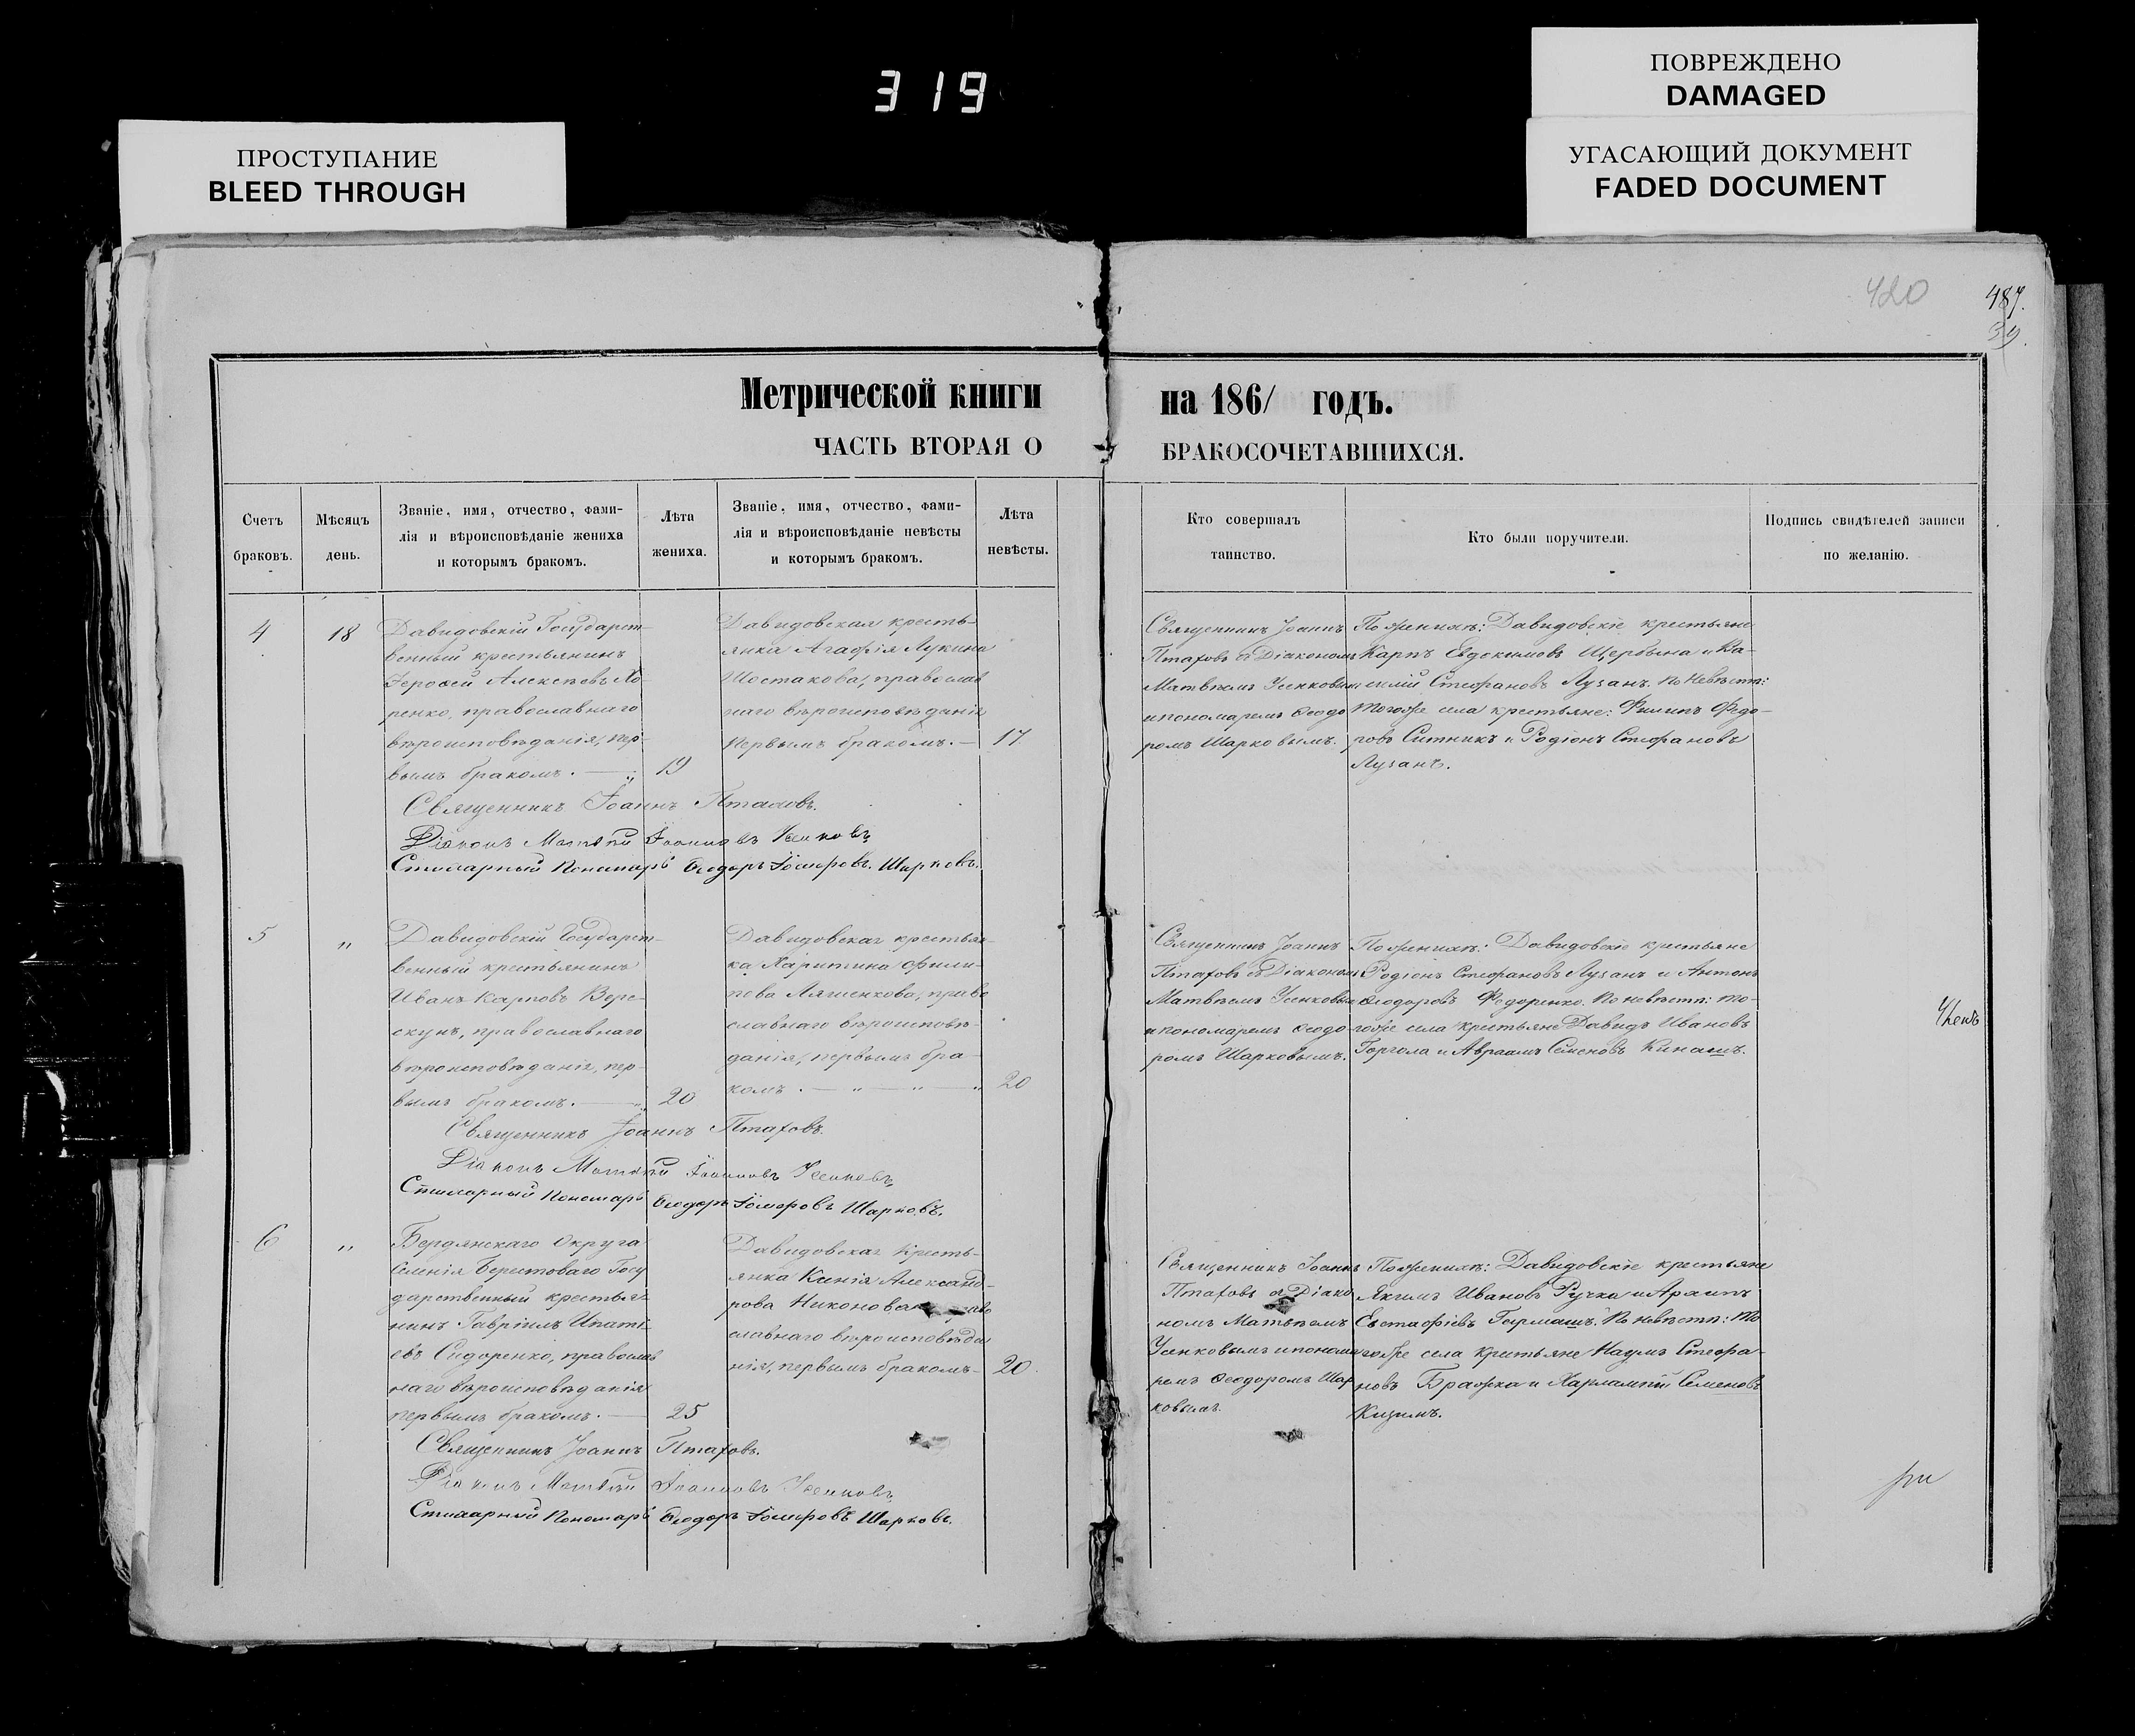 319
ПОВРЕЖДЕНО
DAMAGED
УГАСАЮЩИЙ ДОКУМЕНТ
FADED DOCUMENT
ПРОСТУПАНИЕ
BLEED THROUGH
420
487.
39.
Метрической книги на 1861 годъ.
ЧАСТЬ ВТОРАЯ О БРАКОСОЧЕТАВШИХСЯ.
Счетъ
браковъ.
Мѣсяцъ
день.
Званіе, имя, отчество, фами-
лія и вѣроисповѣданіе жениха
и которымъ бракомъ.
Лѣта
жениха.
Званіе, имя, отчество, фами-
лія и вѣроисповѣданіе невѣсты
и которымъ бракомъ.
Лѣта
невѣсты.
Кто совершалъ
таинство.
Кто были поручители.
Подпись свидѣтелей записи
по желанію.
4
18
Давидовскій Государст-
венный крестьянинъ
Іероѳей Алексѣевъ Хо-
ренко, православнаго
вѣроисповѣданія, пер-
вымъ бракомъ.
19
Давидовская кресть-
янка Агафія Лукина
Шостакова, православ
наго вѣроисповѣданія
первымъ бракомъ.
17
Священникъ Іоаннъ
Птаховъ съ Діакономъ
Матвѣемъ Усенковымъ
и пономаремъ Ѳеодо
ромъ Шарковымъ.
По женихѣ: Давидовскіе крестьяне
Карпъ Евдокимовъ Щербина и Ва-
силій Стефановъ Лузанъ. По невѣстѣ:
тогоже села крестьяне: Филипъ Федо-
ровъ Ситникъ и Родіонъ Стефановъ
Лузанъ.
Священникъ Іоаннъ Птаховъ.
Діаконъ Матвѣй Іоанновъ Усенковъ
Стихарный Пономарь Ѳеодоръ Шарковъ.
5
"
Давидовскій Государст-
венный крестьянинъ
Иванъ Карповъ Вере-
скунъ, православнаго
вѣроисповѣданія, пер-
вымъ бракомъ.
20
Давидовская крестьян-
ка Харитина Фили-
пова Ляшенкова, право
славнаго вѣроисповѣ-
данія, первымъ бра-
комъ.
20
Священникъ Іоаннъ
Птаховъ съ Діакономъ
Матвѣемъ Усенковымъ
и пономаремъ Ѳеодо-
ромъ Шарковымъ.
По женихѣ: Давидовскіе крестьяне
Родіонъ Стефановъ Лузанъ и Антонъ
Ѳеодоровъ Федоренко. По невѣстѣ: то-
гоже села крестьяне Давидъ Ивановъ
Горгола и Авраамъ Семеновъ Кинашъ.
Священникъ Іоаннъ Птаховъ.
Діаконъ Матвѣй Іоанновъ Усенковъ
Стихарный Пономарь Ѳеодоръ Шарковъ.
6
"
Бердянскаго Округа
Селенія Берестоваго Госу
дарственный крестья-
нинъ Гавріилъ Ипаті-
евъ Сидоренко, православ
наго вѣроисповѣданія
первымъ бракомъ.
25
Давидовская кресть-
янка Ксенія Александ-
рова Никонова
славнаго вѣроисповѣда
нія, первымъ бракомъ-
20
Священникъ Іоаннъ
Птаховъ съ Діако
номъ Матвѣемъ
Усенковымъ и понома
ремъ Ѳеодоромъ Шар
ковымъ.
По женихѣ: Давидовскіе крестьяне
Якимъ Ивановъ Ручка и
Евстафіевъ Гирмашъ. По невѣстѣ: то
гоже села крестьяне Наумъ Стефа-
новъ Бражка и Харлампій Семеновъ
Кизимъ.
Священникъ Іоаннъ Птаховъ.
Діаконъ Матвѣй Іоанновъ Усенковъ
Стихарный Пономарь Ѳеодоръ Шарковъ.